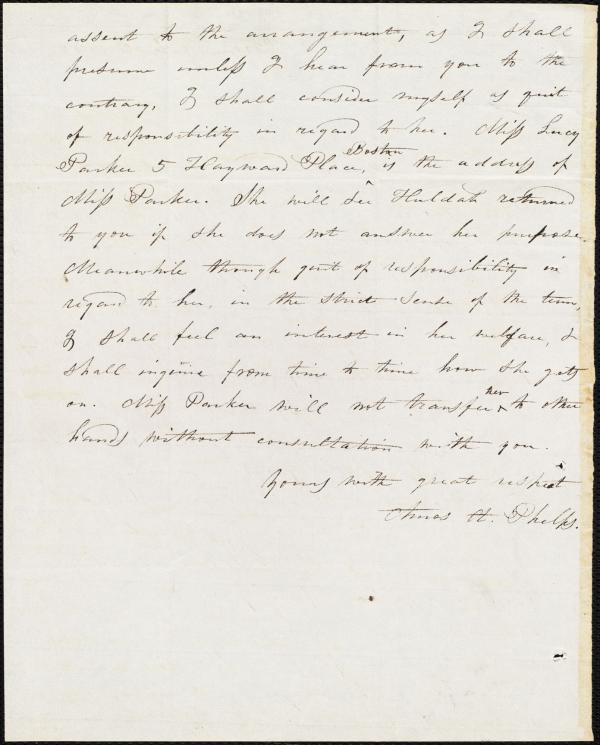 assent to the arrangements, as I shall
presume unless I hear from you to the
contrary, I shall consider myself as quit
of responsibility in regard to her. Miss Lucy
Parker 5 Hayward Place, Boston, is the address of
Miss Parker. She will see Huldah returned
to you if she does not answer her purpose.
Meanwhile though quit of responsibility in
regard to her, in the strict sense of the term,
I shall feel an interest in her welfare, &
shall inquire from time to time how she gets
on. Miss Parker will not transfer her to other
hands without consultation with you.
Yours with great respect
Amos A. Phelps.